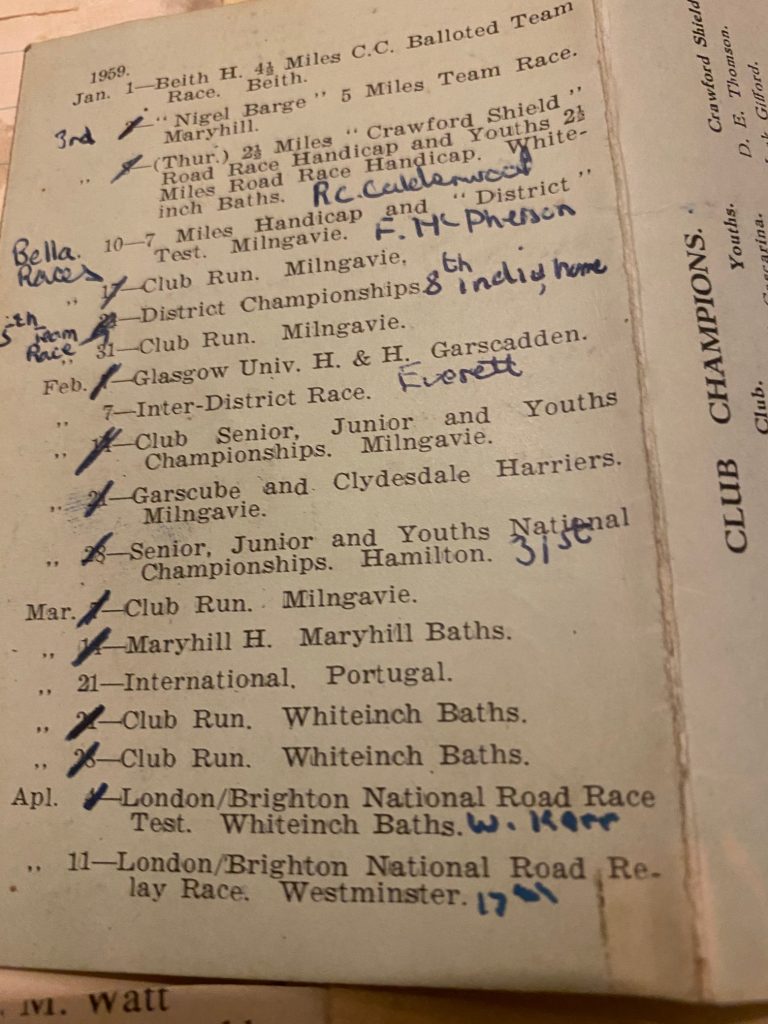 1959.
Jan. 1—Beith H. 4½ Miles C.C. Balloted Team
Race. Beith.
3rd —"Nigel Barge" 5 Miles Team Race.
Maryhill.
„ —(Thur.) 2½ Miles "Crawford Shield"
Road Race Handicap and Youths 2½
Miles Road Race Handicap. White-
inch Baths. R.C. Calderwood
10—7 Miles Handicap and "District"
Test. Milngavie. F. McPherson
Bella.
Races
„ 17—Club Run. Milngavie.
—District Championships. 8th indiv, home
5th Team
Race
„ 31—Club Run. Milngavie.
Feb. —Glasgow Univ. H. & H. Garscadden.
„ 7—Inter-District Race. Everett
„ 14—Club Senior, Junior and Youths
Championships. Milngavie.
„ 21—Garscube and Clydesdale Harriers.
Milngavie.
„ 28—Senior, Junior and Youths National
Championships. Hamilton. 31st
Mar. —Club Run. Milngavie.
„ 14—Maryhill H. Maryhill Baths.
„ 21—International. Portugal.
„ 21—Club Run. Whiteinch Baths.
„ 28—Club Run. Whiteinch Baths.
Apl. 4—London/Brighton National Road Race
Test. Whiteinch Baths. W. Kerr
„ 11—London/Brighton National Road Re-
lay Race. Westminster. 17th
CLUB CHAMPIONS.
Youths.
Crawford Shield
Club.
D. E. Thomson.
Gifford.
M. Watt